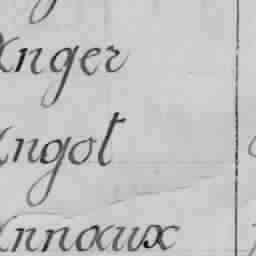 Anger
Angot
Annoaux